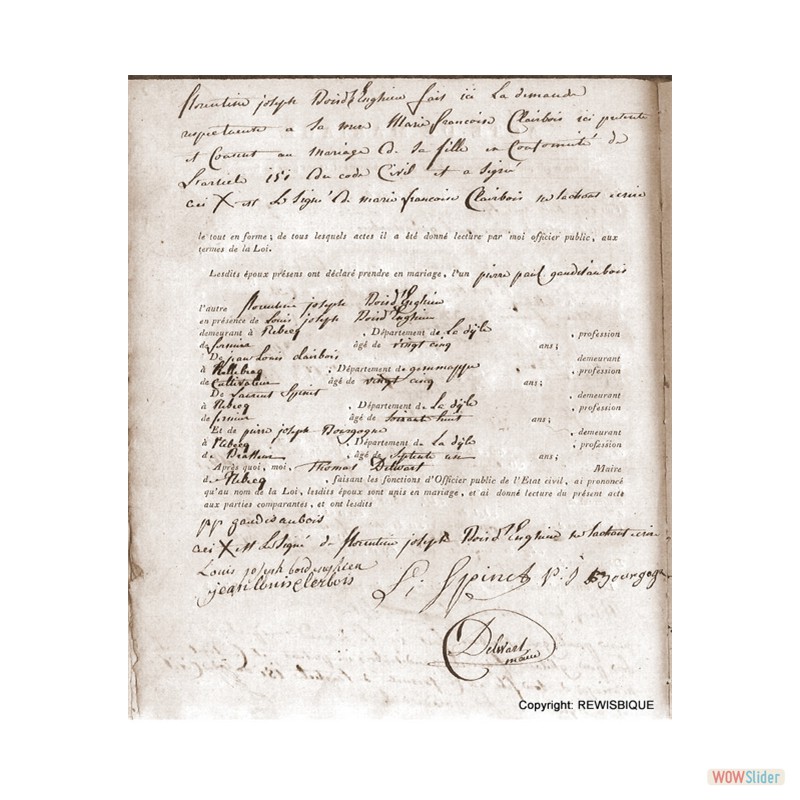 florentine joseph Boisd'Enghien fait ici La demande
respectueuse a sa mere Marie françoise Clairbois ici presente
et Consent au mariage de sa fille en Conformité de
L'article 151 du code Civil et a signé
ceci X est Le Signé de marie françoise Clairbois ne sachant ecrire
le tout en forme ; de tous lesquels actes il a été donné lecture par moi officier public, aux
termes de la Loi.
Lesdits époux présens ont déclaré prendre en mariage, l'un pierre paul gaudisaubois
l'autre florentine joseph Boisd'Enghien
en présence de Louis joseph Boisd'Enghien
demeurant à Rebecq , Département de La dijle , profession
de fermier âgé de vingt cinq ans ;
De jean Louis clairbois demeurant
à , Département de gemmappe , profession
de Cultivateur âgé de vingt cinq ans ;
De Laurent Spinet , demeurant
à Rebecq , Département de La dijle , profession
de fermier âgé de soixante huit ans ;
Et de pierre joseph Bourgogne , demeurant
à Rebecq , Département de La dijle , profession
de Brasseur , âgé de septente un ans ;
Après quoi, moi, Thomas Delwart Maire
de Rebecq , faisant les fonctions d'Officier public de l'Etat civil, ai prononcé
qu'au nom de la Loi, lesdits époux sont unis en mariage, et ai donné lecture du présent acte
aux parties comparantes, et ont lesdits
pp gaudisaubois
ceci X est Le Signé de florentine joseph Boisd'Enghien ne sachant ecrire
Louis joseph boidenghien
jean Louis clerbois L; Spinet p: j Bourgogne
Delwart
maire
Copyright: REWISBIQUE
WOWSlider